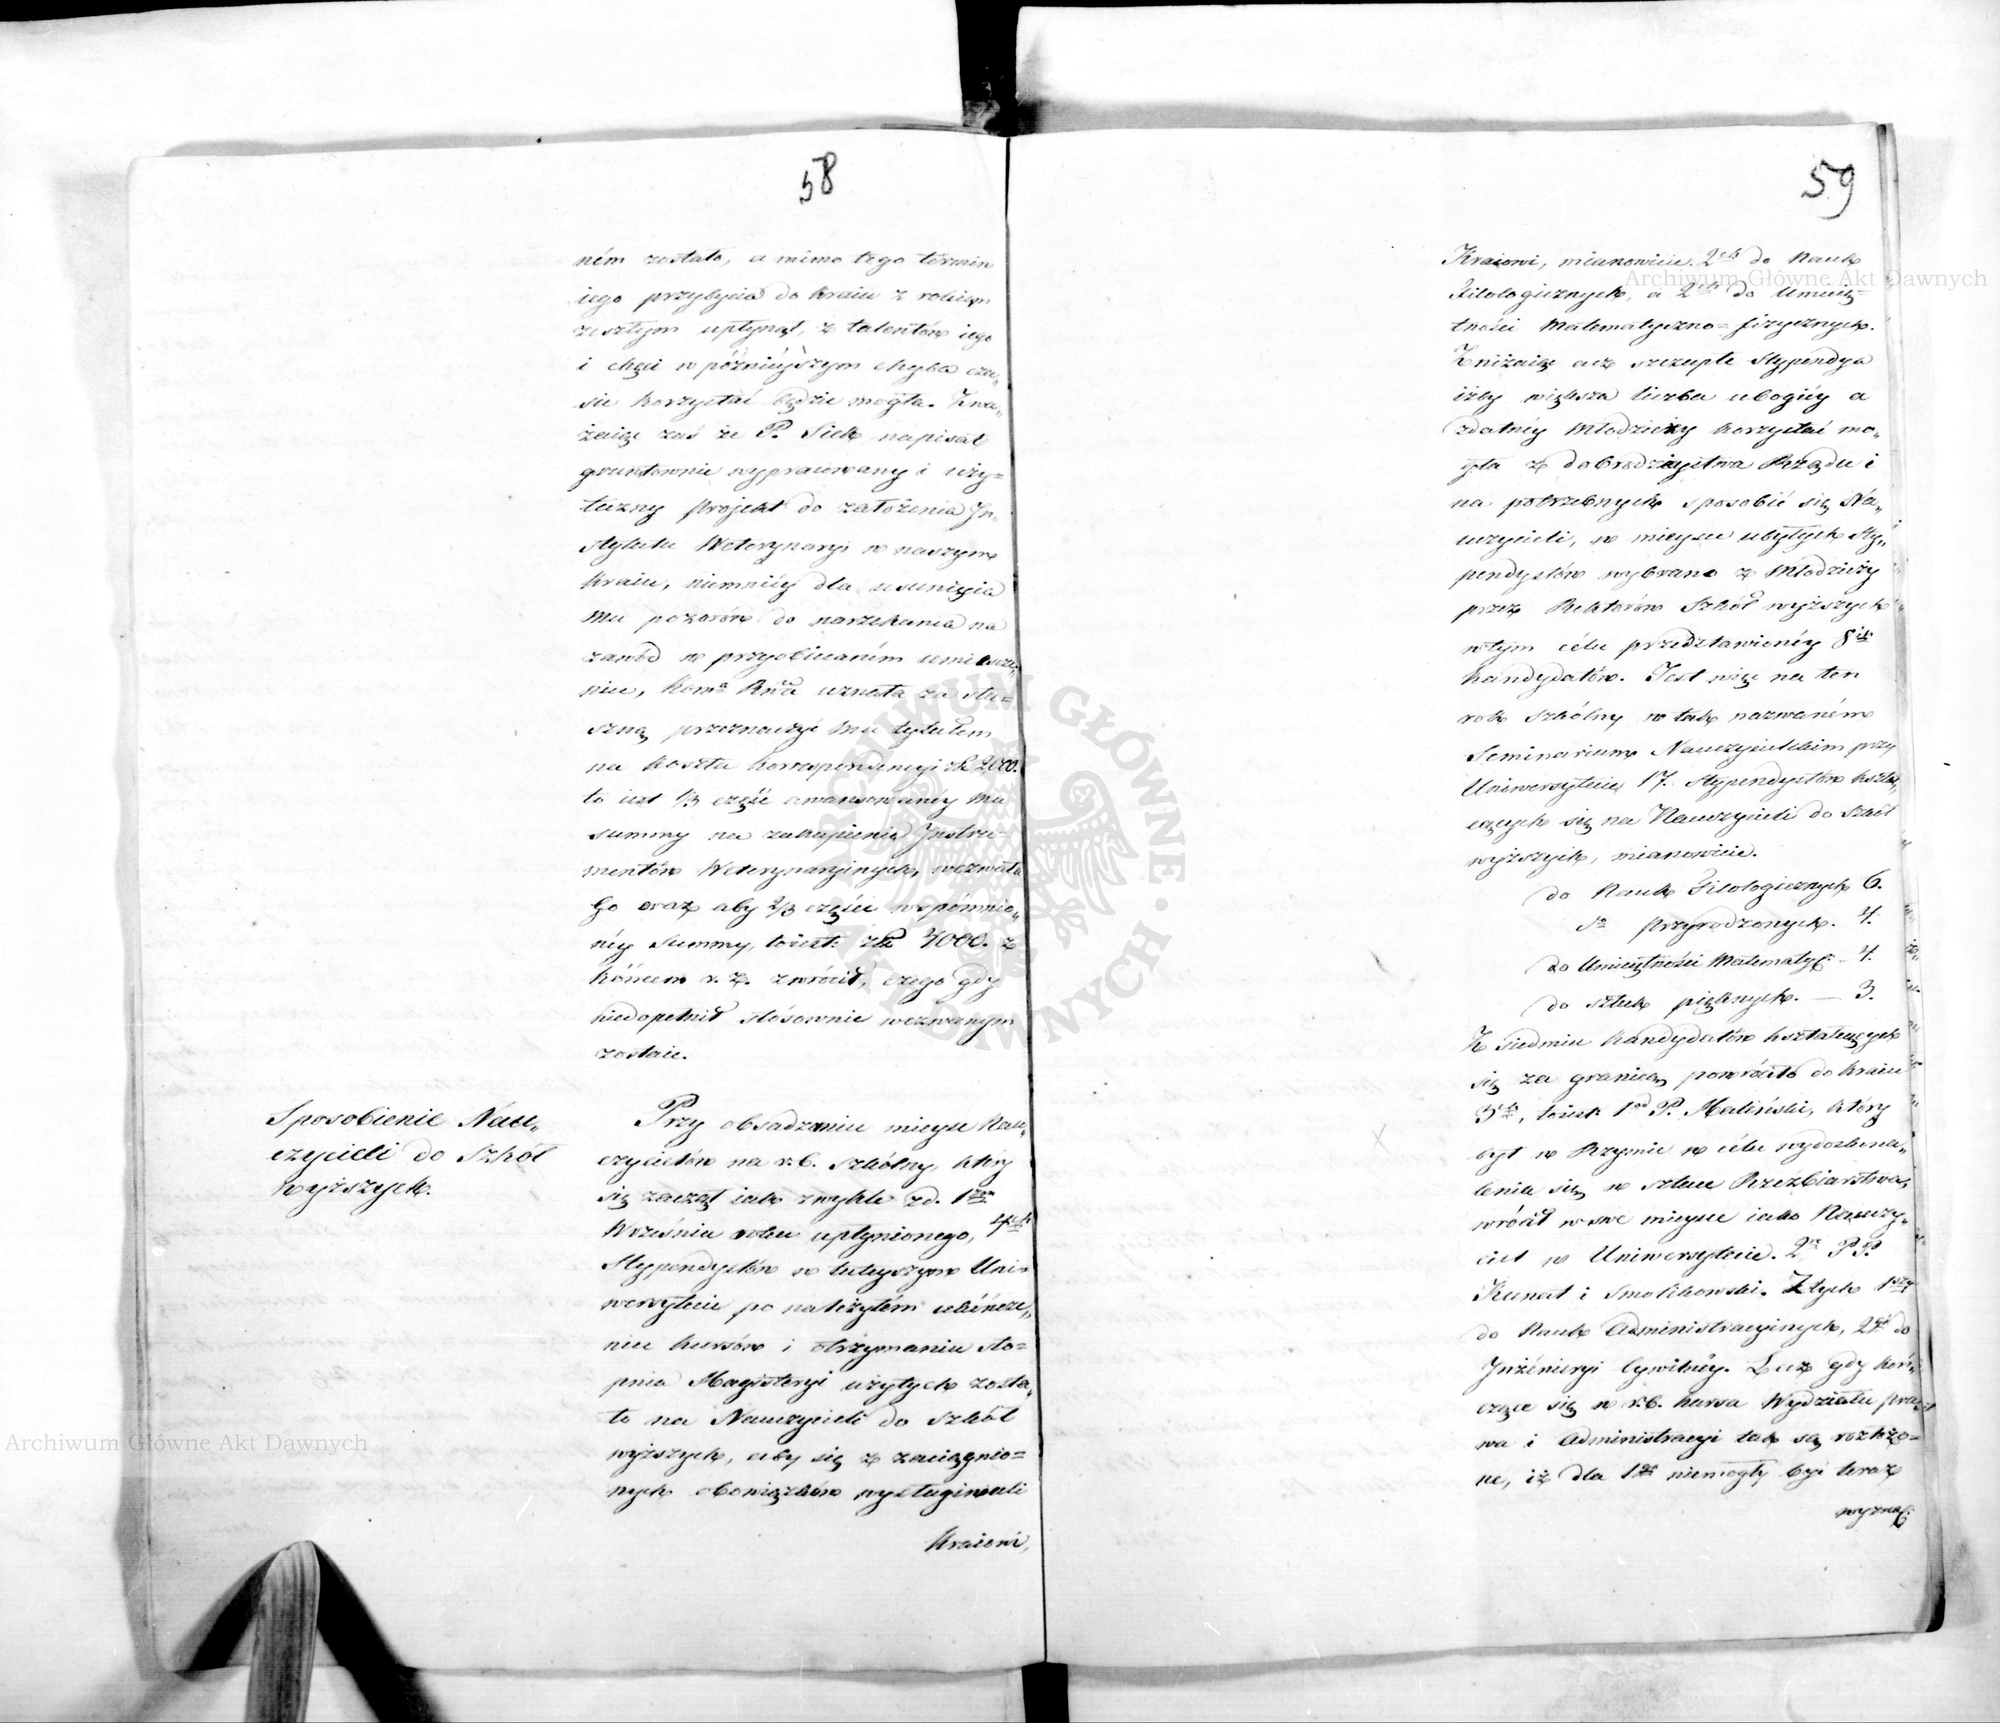 58
ném zostało, a mimo tego termin
iego przybycia do kraiu z rokiem
zeszłym upłynął, z talentów iego
i chęci w późnieyszym chyba cza„
sie korzystać będzie mogła. Zwa„
żaiąc zaś że P. Siek napisał
gruntownie wypracowany i uży=
teczny projekt do założenia In„
stytutu Weterynaryi w naszym
kraiu, niemniéy dla usunięcia
mu pozorów do narzekania na
zawód w przyobiecaném umieszcze„
niu, Kom.a Rz.wa uznała za słu=
szną przeznaczyć mu tytułem
na koszta korrespondencyi zł 2,000.
to iest 1/3 część awansowanéy mu
summy na zakupienie Instru=
mentów Weterynaryinych, wezwała
Go oraz aby 2/3 części wspomnio„
néy summy, toiest: złp 4000. z
końcem r. z. zwrócił, czego gdy
niedopełnił stósownie wezwanym
zostaie.
Sposobienie Nau„
czycieli do Szkół
wyższych.
Przy obsadzaniu mieysc Nau„
czycielów na r.b. szkólny, który
się zaczął iak zwykle zd. 1ym
Września roku upłynionego, 4ech
Stypendystów w tuteyszym Uni=
wersytecie po należytém ukończe„
niu kursów i otrzymaniu sto=
pnia Magisteryi użytych zosta„
ło na Nauczycieli do Szkół
wyższych, aby się z zaciągnio=
nych obowiązków wysługiwali
Kraiowi,
59
Kraiowi, mianowicie: 2ch do Nauk
Filologicznych, a 2ch do Umieię=
tności Matematyczno=fizycznych.
Zniżaiąc acz szczupłe Stypendya
iżby większa liczba ubogiéy a
zdatnéy Młodzieży korzystać mo„
gła z dobrodzieystwa Rządu i
na potrzebnych sposobić się Na„
uczycieli, w mieysce ubyłych Sty„
pendystów wybrano z Młodzieży
przez Rektorów Szkół wyższych
wtym célu przedstawionéy 8iu
kandydatów. Jest więc na ten
rok szkólny w tak nazwaném
Seminarium Nauczycielskim przy
Uniwersytecie 17. Stypendystów kształ„
cących się na Nauczycieli do Szkół
wyższych, mianowicie.
do Nauk Filologicznych 6.
do Przyrodzonych. 4.
do Umieiętności Matematycz: – 4.
do sztuk pięknych. — 3.
Z siedmiu kandydatów kształcących
się za granicą powróciło do kraiu
3ch, toiest: 1od P. Maliński, który
był w Rzymie w célu wydoskona„
lenia się w sztuce Rzéźbiarstwa,
wrócił w swe mieysce iako Nauczy„
ciel w Uniwersytecie. 2re PP.
Kunat i Smolikowski. Z tych 1szy
do Nauk Administracyinych, 2gi do
Inżénieryi Cywilnéy. Lecz gdy koń„
czące się w r.b. kursa Wydziału pra„
wa i Administracyi tak są rozłożo=
ne, iż dla 1go niemogły być teraz
wyznacz:
Archiwum Główne Akt Dawnych
Archiwum Główne Akt Dawnych
ARCHIWUM GŁÓWNE AKT DAWNYCH